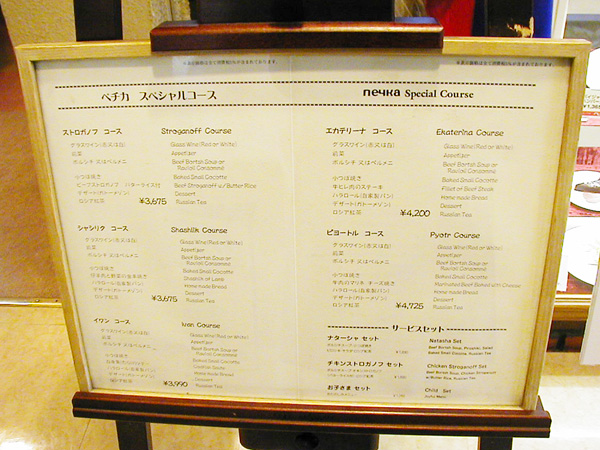 ペチカ スペシャルコース
печка Special Course
ストロガノフ コース Stroganoff Course
グラスワイン(赤又は白) Glass Wine(Red or White)
前菜 Appetizer
ボルシチ 又はペルメニ Beef Bortsh Soup or
Ravioli Consomme
小つぼ焼き Baked Small Cocotte
ビーフストロガノフ バターライス付 Beef Stroganoff w/Butter Rice
デザート(ガトーメゾン) Dessert
ロシア紅茶 ¥3,675 Russian Tea
シャシリク コース Shashlik Course
グラスワイン(赤又は白) Glass Wine(Red or White)
前菜 Appetizer
ボルシチ 又はペルメニ Beef Bortsh Soup or
Ravioli Consomme
小つぼ焼き Baked Small Cocotte
Shashlik of Lamb
ハラロール(自家製パン) Homemade Bread
デザート(ガトーメゾン) Dessert
ロシア紅茶 ¥3,675 Russian Tea
イワン コース Ivan Course
グラスワイン(赤又は白) Glass Wine(Red or White)
前菜 Appetizer
ボルシチ 又はペルメニ Beef Bortsh Soup or
Ravioli Consomme
小つぼ焼き Baked Small Cocotte
Homemade Bread
デザート(ガトーメゾン) Dessert
ロシア紅茶 ¥3,990 Russian Tea
エカテリーナ コース Ekaterina Course
グラスワイン(赤又は白) Glass Wine(Red or White)
前菜 Appetizer
ボルシチ 又はペルメニ Beef Bortsh Soup or
Ravioli Consomme
小つぼ焼き Baked Small Cocotte
牛ヒレ肉のステーキ Fillet of Beef Steak
ハラロール(自家製パン) Homemade Bread
デザート(ガトーメゾン) Dessert
ロシア紅茶 ¥4,200 Russian Tea
ピョートル コース Pyotr Course
グラスワイン(赤又は白) Glass Wine(Red or White)
前菜 Appetizer
ボルシチ 又はペルメニ Beef Bortsh Soup or
Ravioli Consomme
小つぼ焼き Baked Small Cocotte
牛肉のマリネ チーズ焼き Marinated Beef Baked with Cheese
ハラロール(自家製パン) Homemade Bread
デザート(ガトーメゾン) Dessert
ロシア紅茶 ¥4,725 Russian Tea
サービスセット
ナターシャ セット Natasha Set
Beef Bortsh Soup, Piroshki, Salad
Baked Small Cocotte, Russian Tea
チキンストロガノフ セット Chicken Stroganoff Set
Beef Bortsh Soup, Chicken Stroganoff
w/Butter Rice, Russian Tea
お子さま セット Child Set